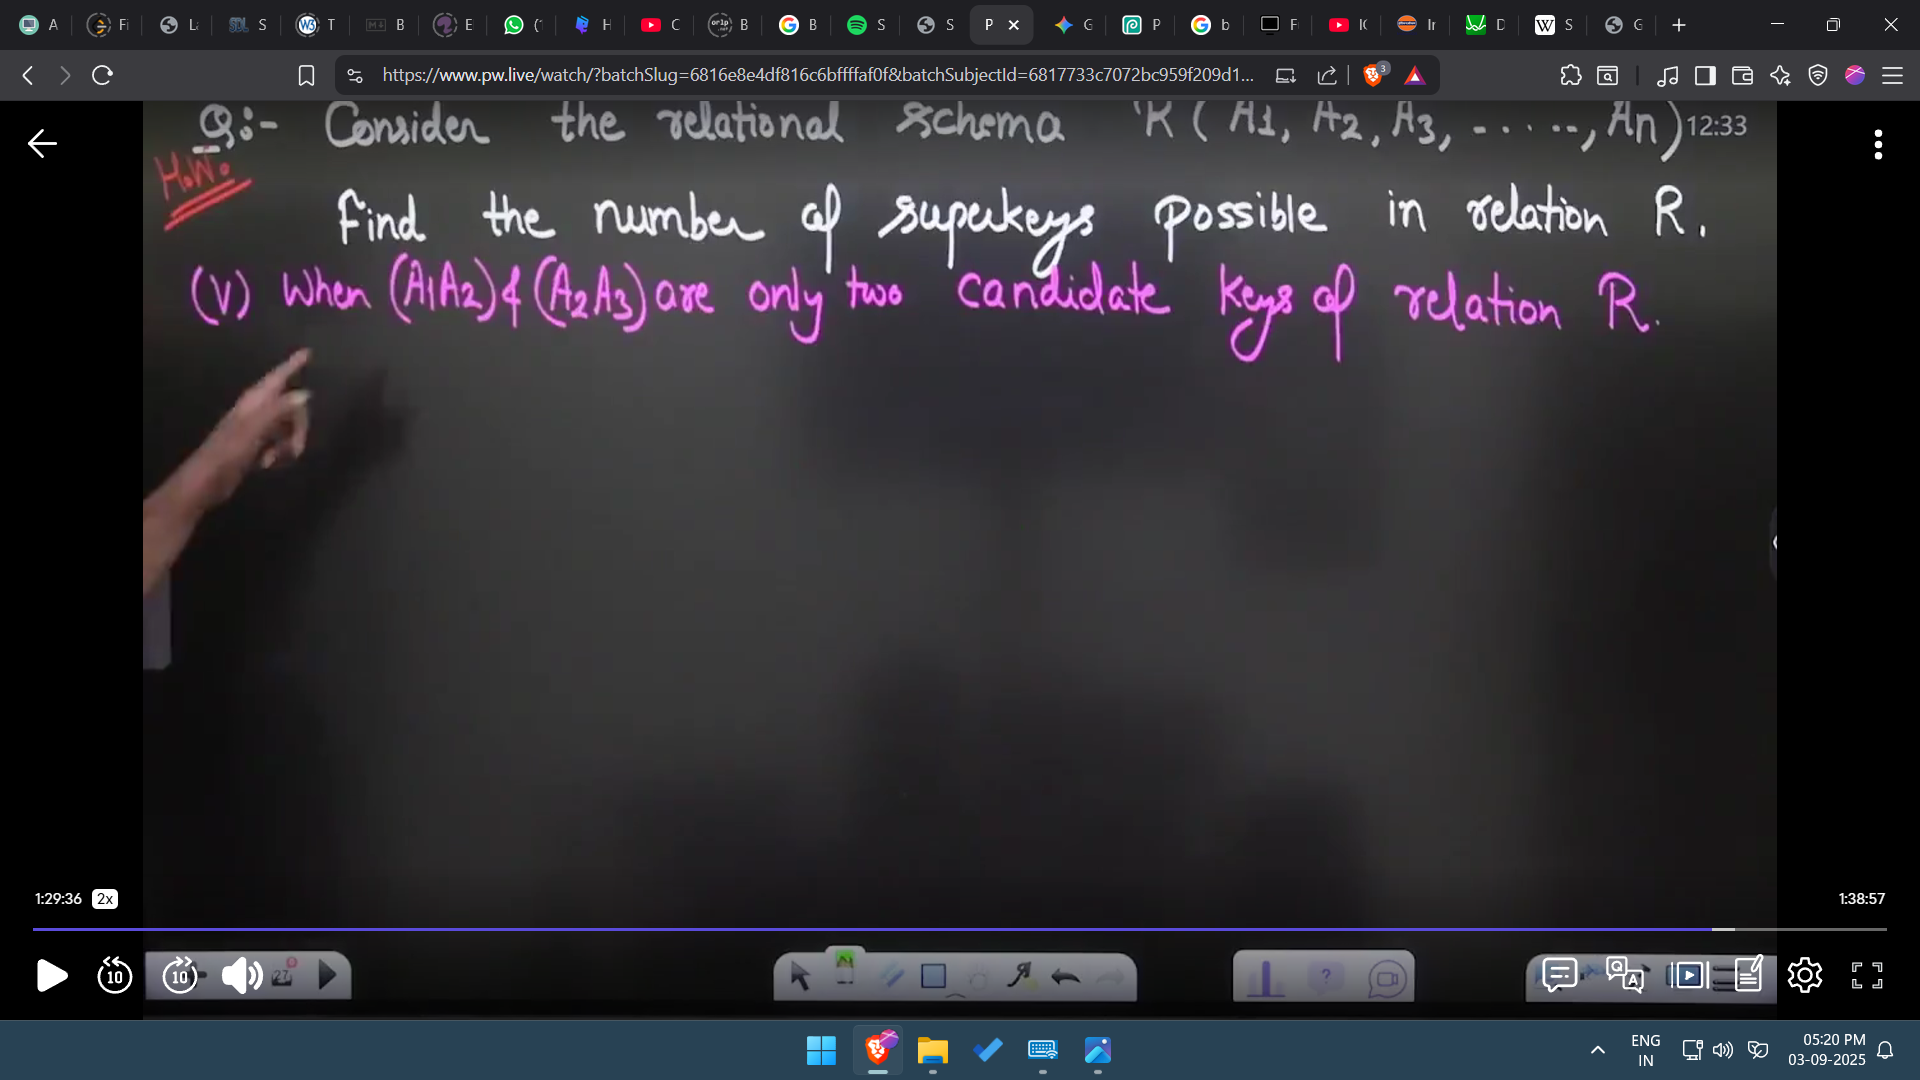 A Fi L S T B E ( H C B B S S P G P b F IC Ir D S G
https://www.pw.live/watch/?batchSlug=6816e8e4df816c6bffffaf0f&batchSubjectId=6817733c7072bc959f209d1... 3
Q:- Consider the relational schema R ( A1, A2, A3, - - - - -, An) 12:33
H.W.
Find the number of superkeys possible in relation R.
(V) When (A1A2) & (A2A3) are only two candidate keys of relation R.
1:29:36 2x 1:38:57
10 10 27
ENG
IN
05:20 PM
03-09-2025